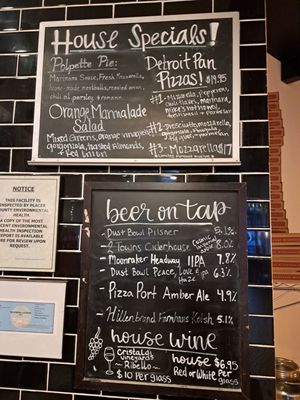 House Specials!
Polpette Pie:
Marinara Sauce, Fresh Mozzarella,
home-made meatballs, roasted onion,
chili oil, parsley & romano
Orange Marmalade
Salad
Mixed Greens, orange vinaigrette
gorgonzola, toasted Almonds
+ Red Onion
Detroit Pan
Pizzas! $19.95
#1- Mozzarella, Pepperoni,
chili flakes, marinara,
mike's hot honey
#2- prosciutto, mozzarella,
gorgonzola,
#3- Mozzarella $17
NOTICE
THIS FACILITY IS
INSPECTED BY PLACER
COUNTY ENVIRONMENTAL
HEALTH.
A COPY OF THE MOST
RECENT ENVIRONMENTAL
HEALTH INSPECTION
REPORT IS AVAILABLE HERE
FOR REVIEW UPON
REQUEST
beer on tap
- Dust Bowl Pilsner 5.2%
- 2 Towns Ciderhouse 8.0%
- Moonraker Headway IIPA 7.8%
- Dust Bowl Peace, Love & Haze 6.3%
- Pizza Port Amber Ale 4.9%
- Hillenbrand Farmhaus Kolsh 5.1%
house wine
Cristaldi
vineyards
~ Ribello ~
$10 per glass
house $6.95
Red or White per
glass